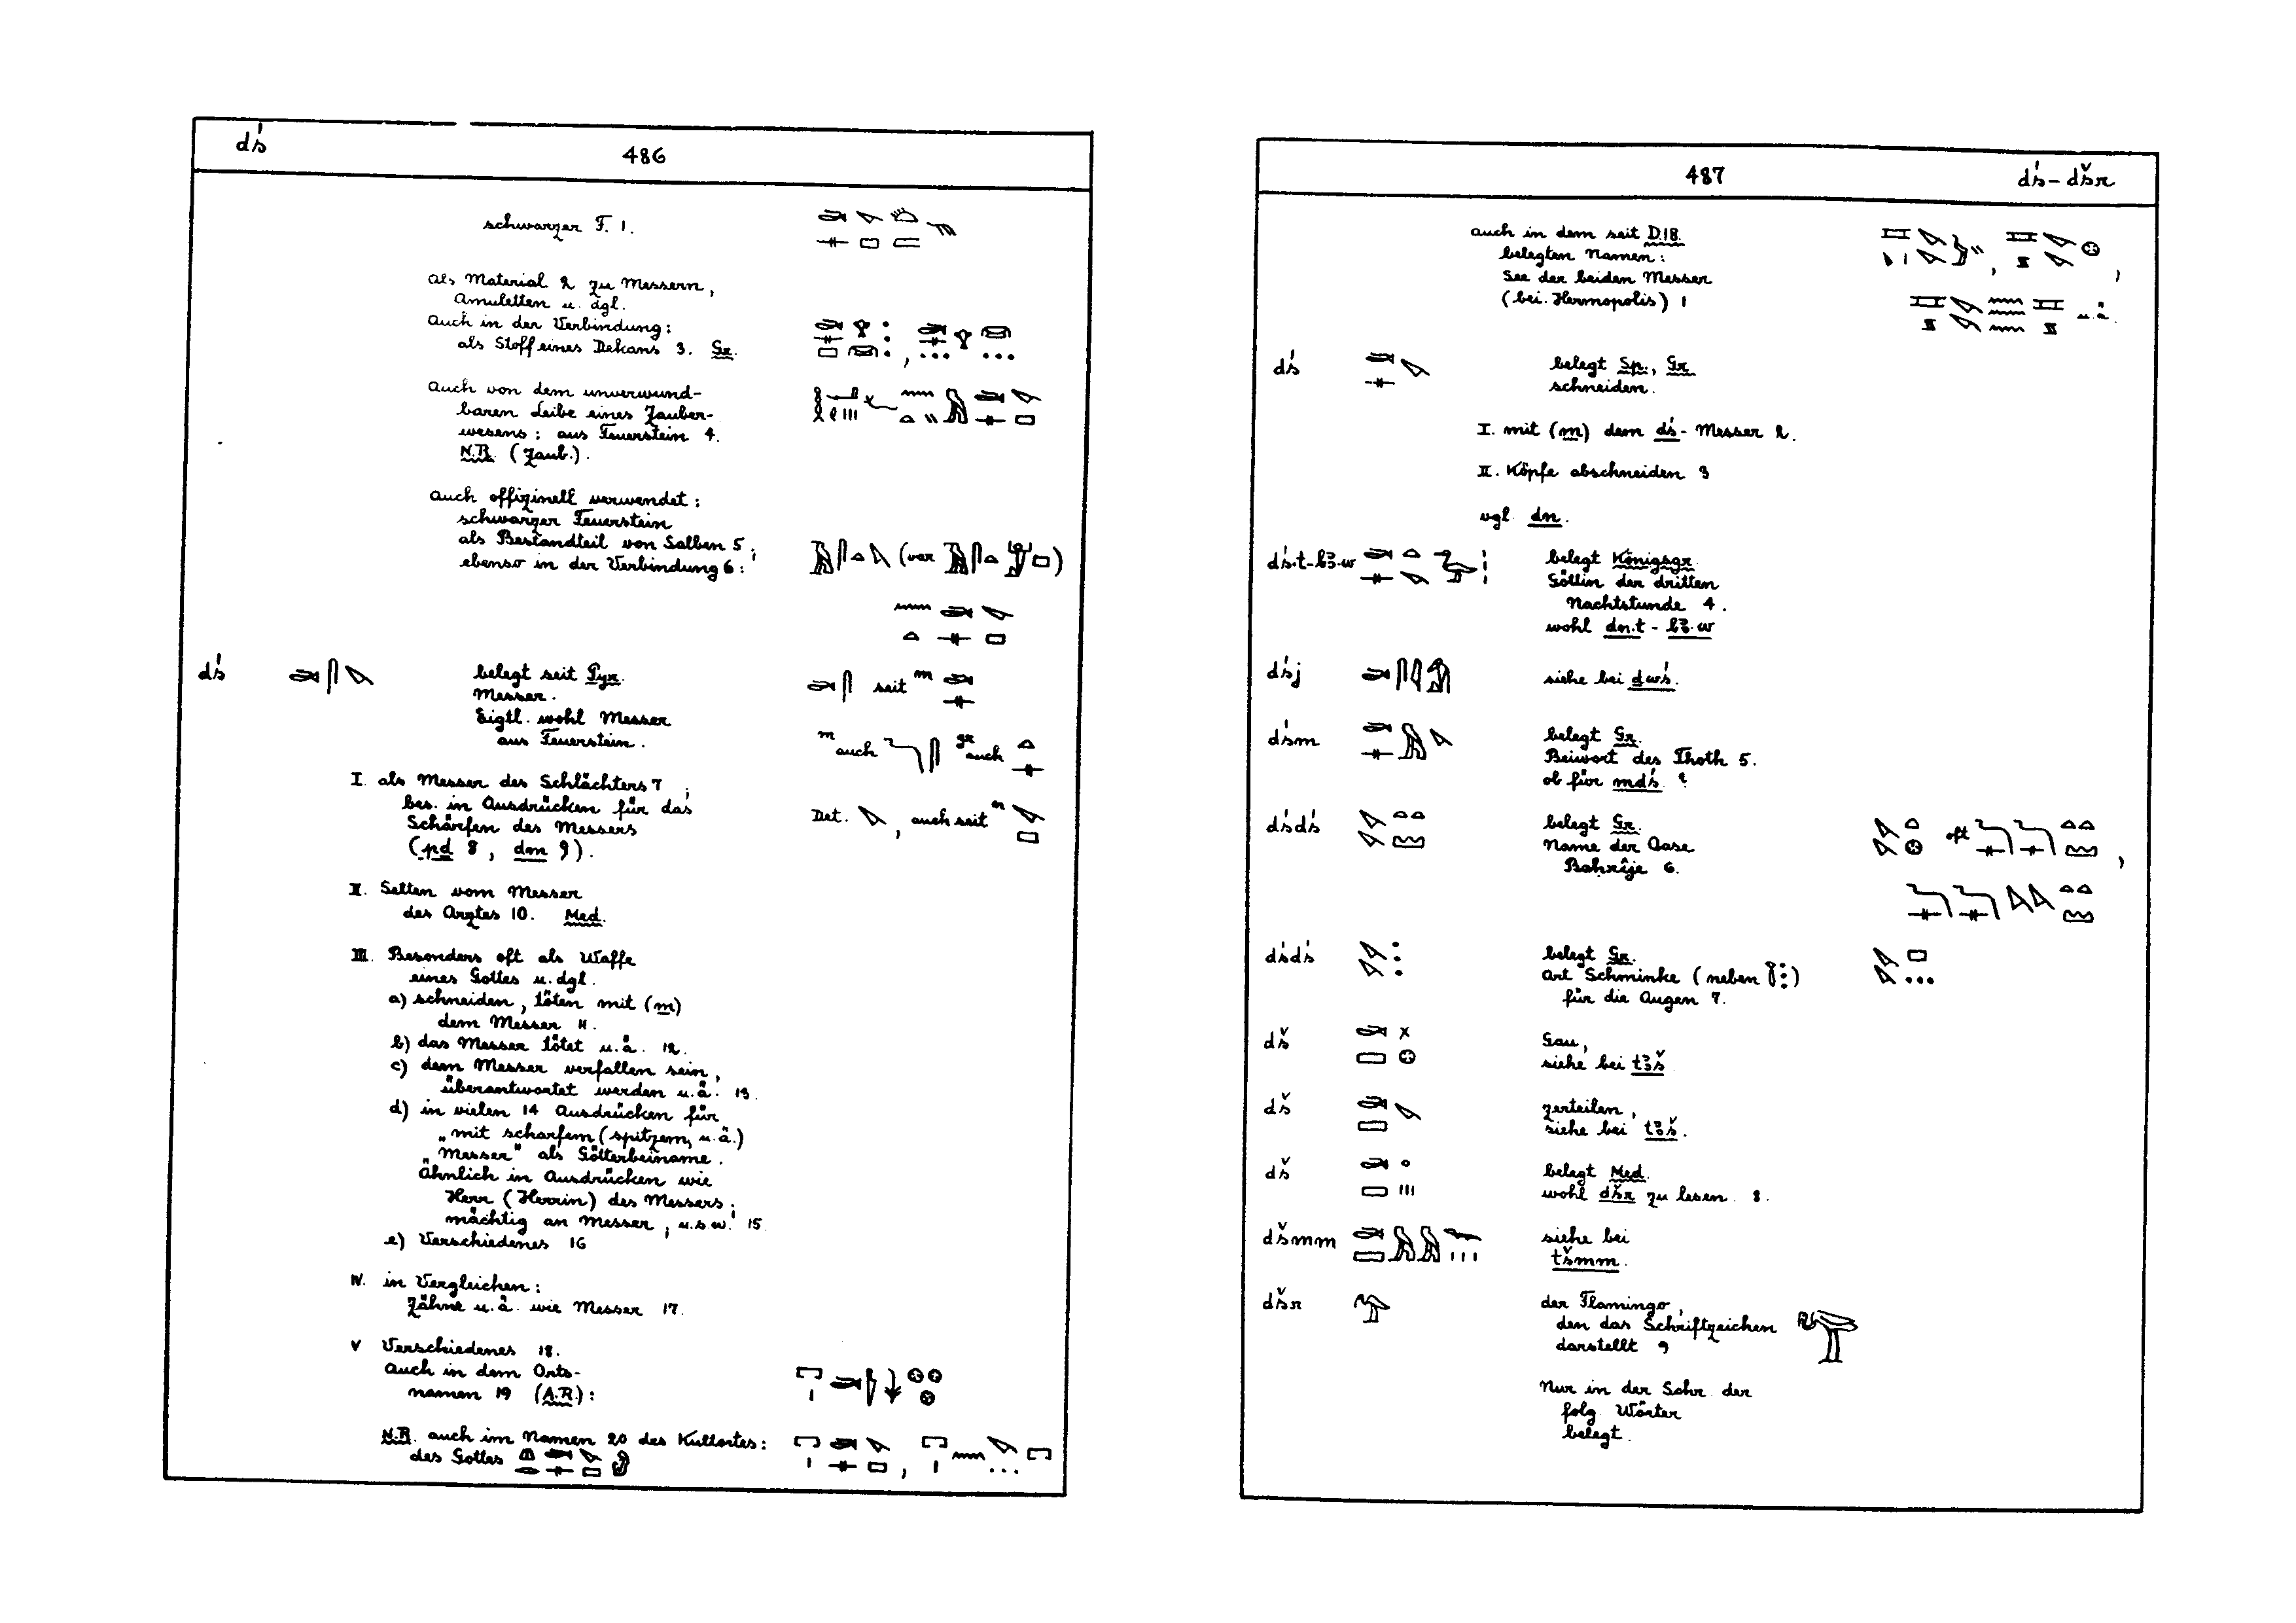 dś
486
schwarzer F. 1.
als Material 2 zu Messern,
Amuletten u. dgl.
Auch in der Verbindung:
als Stoff eines Dekans 3. Gr.
Auch von dem unverwund-
baren Leibe eines Zauber-
wesens: aus Feuerstein 4.
N.R. (Zaub.).
Auch offizinell verwendet:
schwarzer Feuerstein
als Bestandteil von Salben 5;
ebenso in der Verbindung 6: (var )
dś
belegt seit Pyr.
Messer.
Eigtl. wohl Messer
aus Feuerstein.
seit m
m auch gr auch
Det. , auch seit
I. als Messer des Schlächters 7;
bes. in Ausdrücken für das
Schärfen des Messers
(pd 8, dm 9).
II. Selten vom Messer
des Arztes 10. Med.
III. Besonders oft als Waffe
eines Gottes u. dgl.
a) schneiden, töten mit (m)
dem Messer 11.
b) das Messer tötet u.ä. 12.
c) dem Messer verfallen sein,
überantwortet werden u.ä. 13.
d) in vielen 14 Ausdrücken für
„mit scharfem (spitzem, u.ä.)
Messer" als Götterbeiname.
Ähnlich in Ausdrücken wie
Herr (Herrin) des Messers;
mächtig an Messer, u.s.w. 15.
e) Verschiedenes 16
IV. in Vergleichen:
Zähne u.ä. wie Messer 17.
V Verschiedenes 18.
Auch in dem Orts-
namen 19 (A.R.):
N.R. auch im Namen 20 des Kultortes:
des Gottes
487
dś – dšr
auch in dem seit D.18.
belegten Namen:
See der beiden Messer
(bei Hermopolis) 1
u.ä.
dś
belegt Sp., Gr.
schneiden.
I. mit (m) dem dś-Messer 2.
II. Köpfe abschneiden 3
vgl. dn.
dś.t-bꜣ.w
belegt Königsgr.
Göttin der dritten
Nachtstunde 4.
wohl dn.t-bꜣ.w
dśj
siehe bei dwś.
dśm
belegt Gr.
Beiwort des Thoth 5.
ob für mdś ?
dśdś
belegt Gr.
Name der Oase
Bahrîje 6.
oft
dśdś
belegt Gr.
Art Schminke (neben )
für die Augen 7.
dš
Gau,
siehe bei tꜣš
dš
zerteilen,
siehe bei tꜣš.
dš
belegt Med.
wohl dšr zu lesen 8.
dšmm
siehe bei
tšmm.
dšr
der Flamingo,
den das Schriftzeichen
darstellt 9
Nur in der Schr. der
folg. Wörter
belegt.